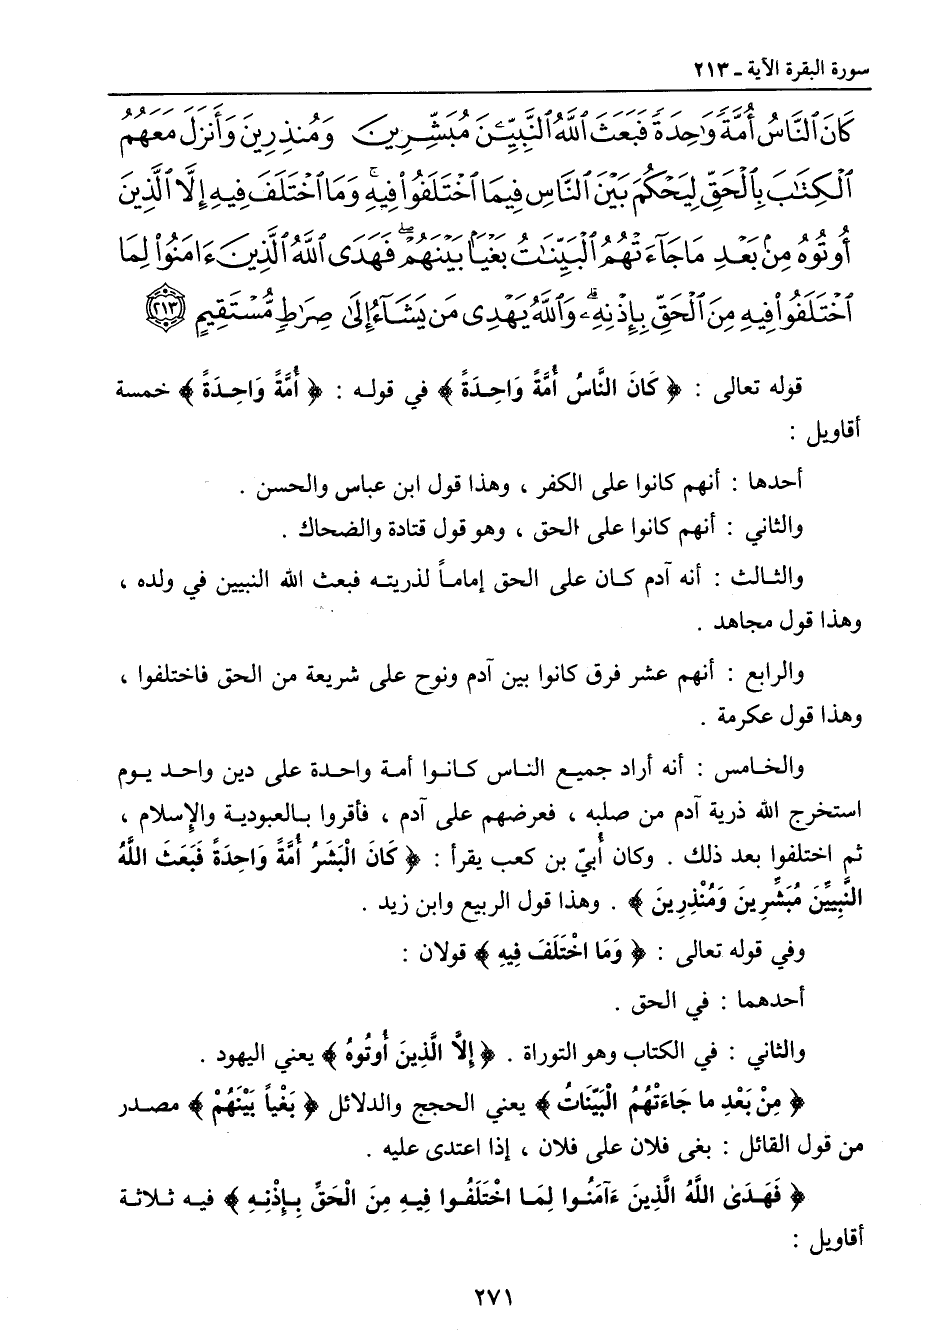 سورة البقرة الآية ـ ٢١٣
كَانَ ٱلنَّاسُ أُمَّةً وَٰحِدَةً فَبَعَثَ ٱللَّهُ ٱلنَّبِيِّـۧنَ مُبَشِّرِينَ وَمُنذِرِينَ وَأَنزَلَ مَعَهُمُ
ٱلْكِتَٰبَ بِٱلْحَقِّ لِيَحْكُمَ بَيْنَ ٱلنَّاسِ فِيمَا ٱخْتَلَفُوا۟ فِيهِ ۚ وَمَا ٱخْتَلَفَ فِيهِ إِلَّا ٱلَّذِينَ
أُوتُوهُ مِنۢ بَعْدِ مَا جَآءَتْهُمُ ٱلْبَيِّنَٰتُ بَغْيًۢا بَيْنَهُمْ ۖ فَهَدَى ٱللَّهُ ٱلَّذِينَ ءَامَنُوا۟ لِمَا
ٱخْتَلَفُوا۟ فِيهِ مِنَ ٱلْحَقِّ بِإِذْنِهِۦ ۗ وَٱللَّهُ يَهْدِى مَن يَشَآءُ إِلَىٰ صِرَٰطٍ مُّسْتَقِيمٍ ٢١٣
قوله تعالى : ﴿ كَانَ النَّاسُ أُمَّةً وَاحِدَةً ﴾ في قوله : ﴿ أُمَّةً وَاحِدَةً ﴾ خمسة
أقاويل :
أحدها : أنهم كانوا على الكفر ، وهذا قول ابن عباس والحسن .
والثاني : أنهم كانوا على الحق ، وهو قول قتادة والضحاك .
والثالث : أنه آدم كان على الحق إماماً لذريته فبعث الله النبيين في ولده ،
وهذا قول مجاهد .
والرابع : أنهم عشر فرق كانوا بين آدم ونوح على شريعة من الحق فاختلفوا ،
وهذا قول عكرمة .
والخامس : أنه أراد جميع الناس كانوا أمة واحدة على دين واحد يوم
استخرج الله ذرية آدم من صلبه ، فعرضهم على آدم ، فأقروا بالعبودية والإسلام ،
ثم اختلفوا بعد ذلك . وكان أُبيّ بن كعب يقرأ : ﴿ كَانَ الْبَشَرُ أُمَّةً وَاحِدَةً فَبَعَثَ اللَّهُ
النَّبِيِّينَ مُبَشِّرِينَ وَمُنْذِرِينَ ﴾ . وهذا قول الربيع وابن زيد .
وفي قوله تعالى : ﴿ وَمَا اخْتَلَفَ فِيهِ ﴾ قولان :
أحدهما : في الحق .
والثاني : في الكتاب وهو التوراة . ﴿ إِلَّا الَّذِينَ أُوتُوهُ ﴾ يعني اليهود .
﴿ مِنْ بَعْدِ ما جَاءَتْهُمُ الْبَيِّنَاتُ ﴾ يعني الحجج والدلائل ﴿ بَغْياً بَيْنَهُمْ ﴾ مصدر
من قول القائل : بغى فلان على فلان ، إذا اعتدى عليه .
﴿ فَهَدَىٰ اللَّهُ الَّذِينَ ءَآمَنُوا لِمَا اخْتَلَفُوا فِيهِ مِنَ الْحَقِّ بِإِذْنِهِ ﴾ فيه ثلاثة
أقاويل :
٢٧١